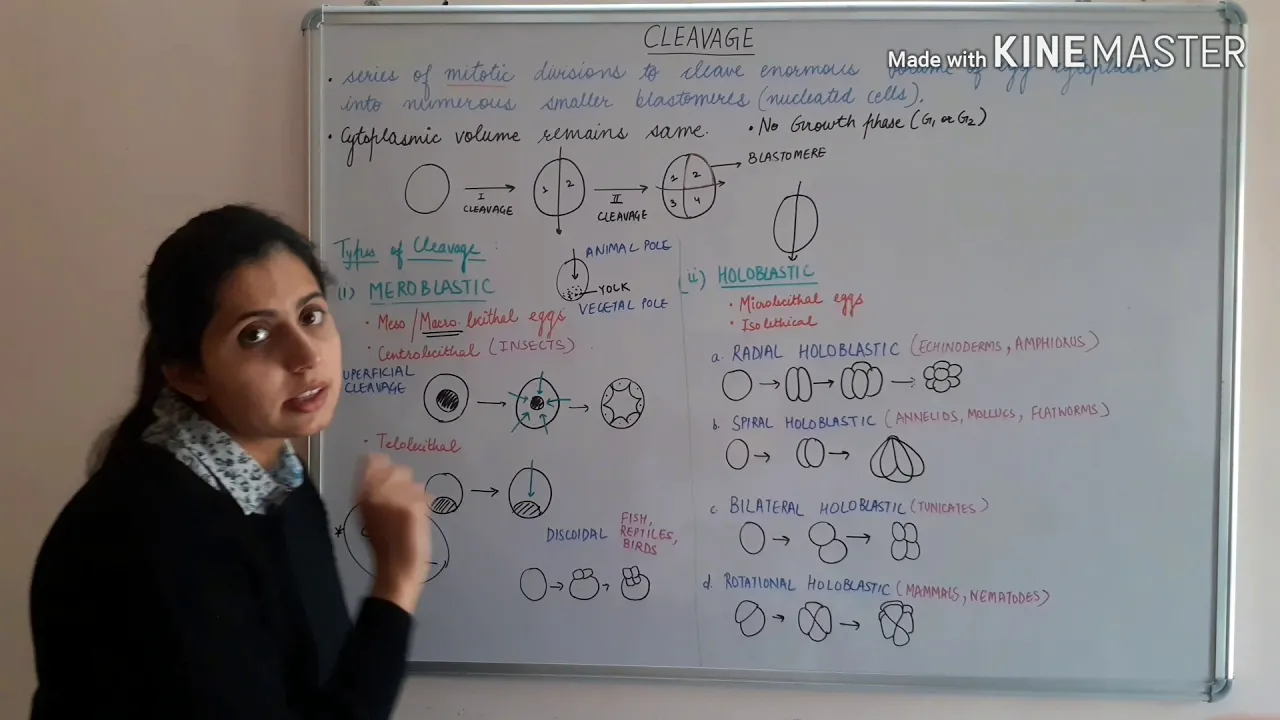 CLEAVAGE
Made with KINEMASTER
• series of mitotic divisions to cleave enormous volume of egg cytoplasm
into numerous smaller blastomeres (nucleated cells).
• Cytoplasmic volume remains same. • No Growth phase (G1 or G2)
I CLEAVAGE
1 2
II CLEAVAGE
1 2
3 4
BLASTOMERE
Types of Cleavage :
(i) MEROBLASTIC
ANIMAL POLE
YOLK
VEGETAL POLE
• Meso / Macro lecithal eggs
• Centrolecithal (INSECTS)
UPERFICIAL
CLEAVAGE
• Telolecithal
*
DISCOIDAL
FISH,
REPTILES,
BIRDS
ii) HOLOBLASTIC
• Microlecithal eggs
• Isolethical
a. RADIAL HOLOBLASTIC (ECHINODERMS, AMPHIOXUS)
b. SPIRAL HOLOBLASTIC (ANNELIDS, MOLLUCS, FLATWORMS)
c. BILATERAL HOLOBLASTIC (TUNICATES)
d. ROTATIONAL HOLOBLASTIC (MAMMALS, NEMATODES)